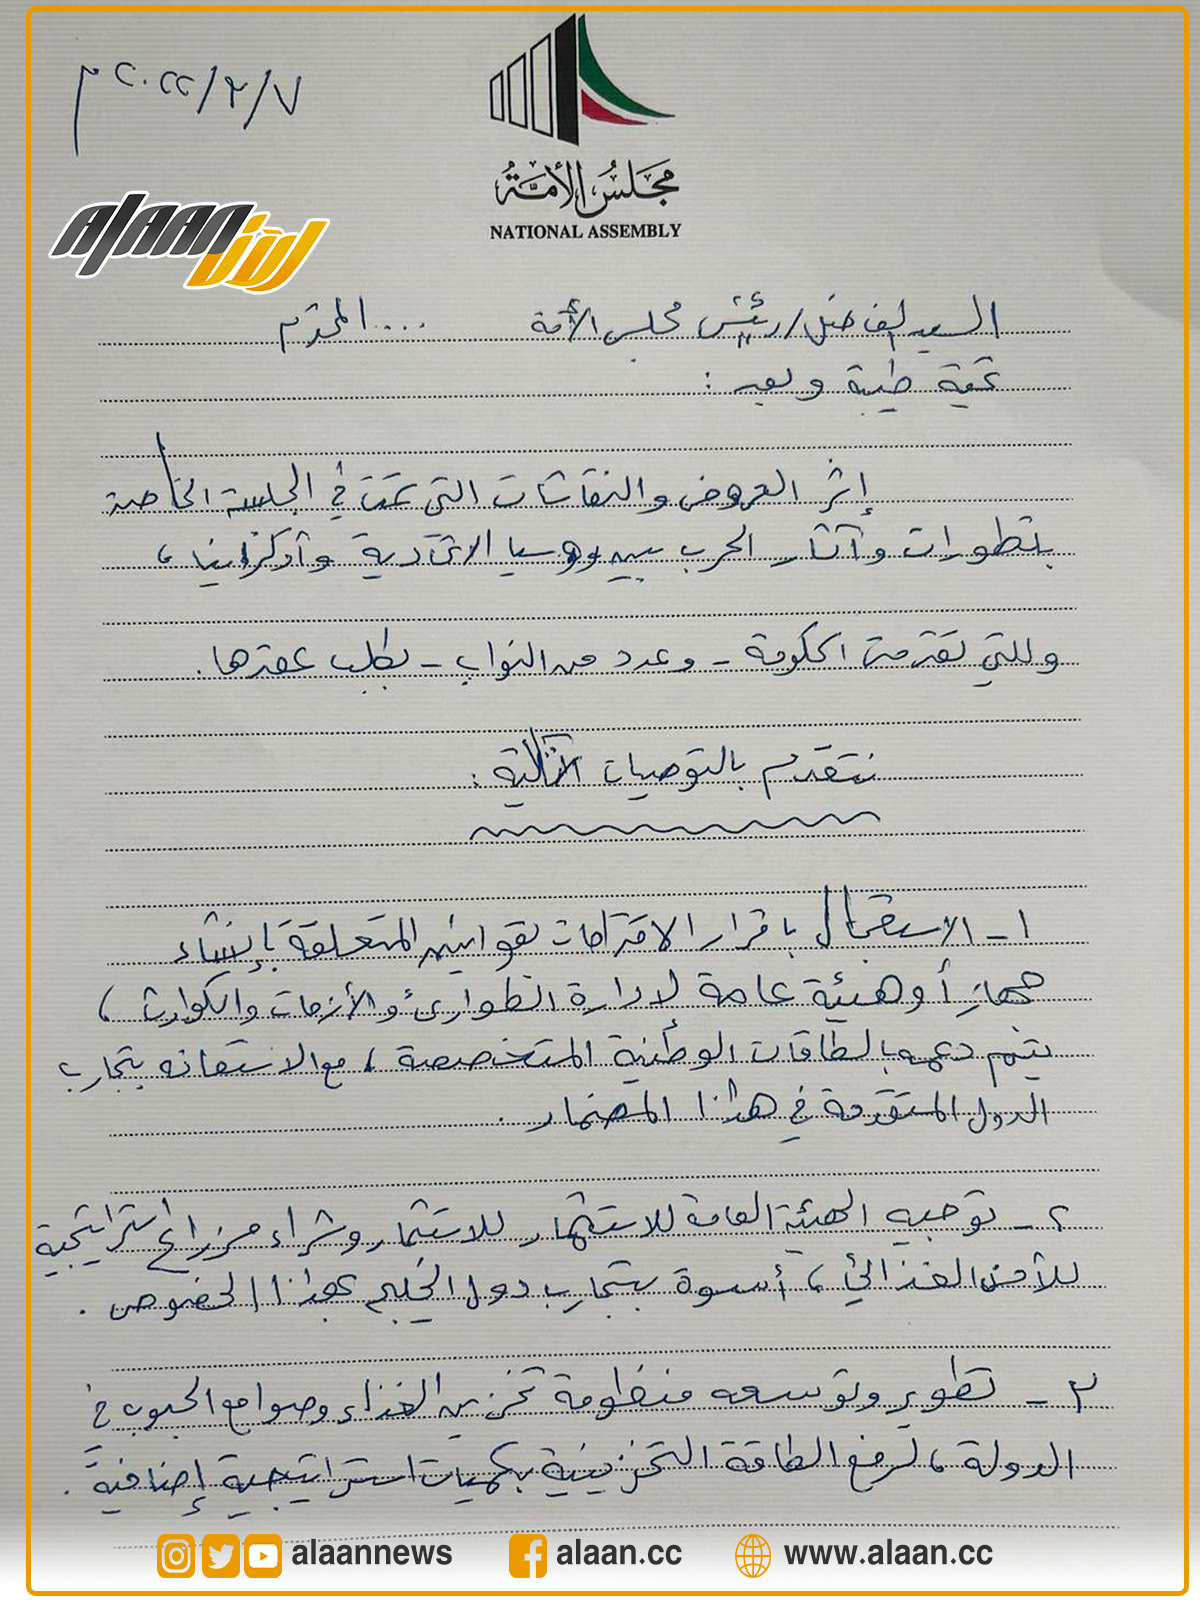 ٢٠٢٢/٣/٧م
مجلس الأمة
NATIONAL ASSEMBLY
alaan الآن
السيد الفاضل/ رئيس مجلس الأمة .... المحترم
تحية طيبة وبعد :
إثر العروض والنقاشات التي تمت في الجلسة الخاصة
بتطورات وآثار الحرب بين روسيا الاتحادية وأوكرانيا ،
وللتي تقدمت الحكومة - وعدد من النواب - بطلب عقدها.
نتقدم بالتوصيات التالية :
١- الاستعجال باقرار الاقتراحات بقوانين المتعلقة بإنشاء
جهاز أو هيئة عامة لادارة الطوارئ والأزمات والكوارث ،
يتم دعمه بالطاقات الوطنية المتخصصة ، مع الاستعانه بتجارب
الدول المتقدمة في هذا المضمار .
٢- توجيه الهيئة العامة للاستثمار للاستثمار وشراء مزارع استراتيجية
للأمن الغذائي ، أسوة بتجارب دول الخليج بهذا الخصوص .
٣- تطوير وتوسعه منظومة تخزين الغذاء وصوامع الحبوب في
الدولة ، لرفع الطاقة التخزينية بكميات استراتيجية إضافية .
alaannews
alaan.cc
www.alaan.cc